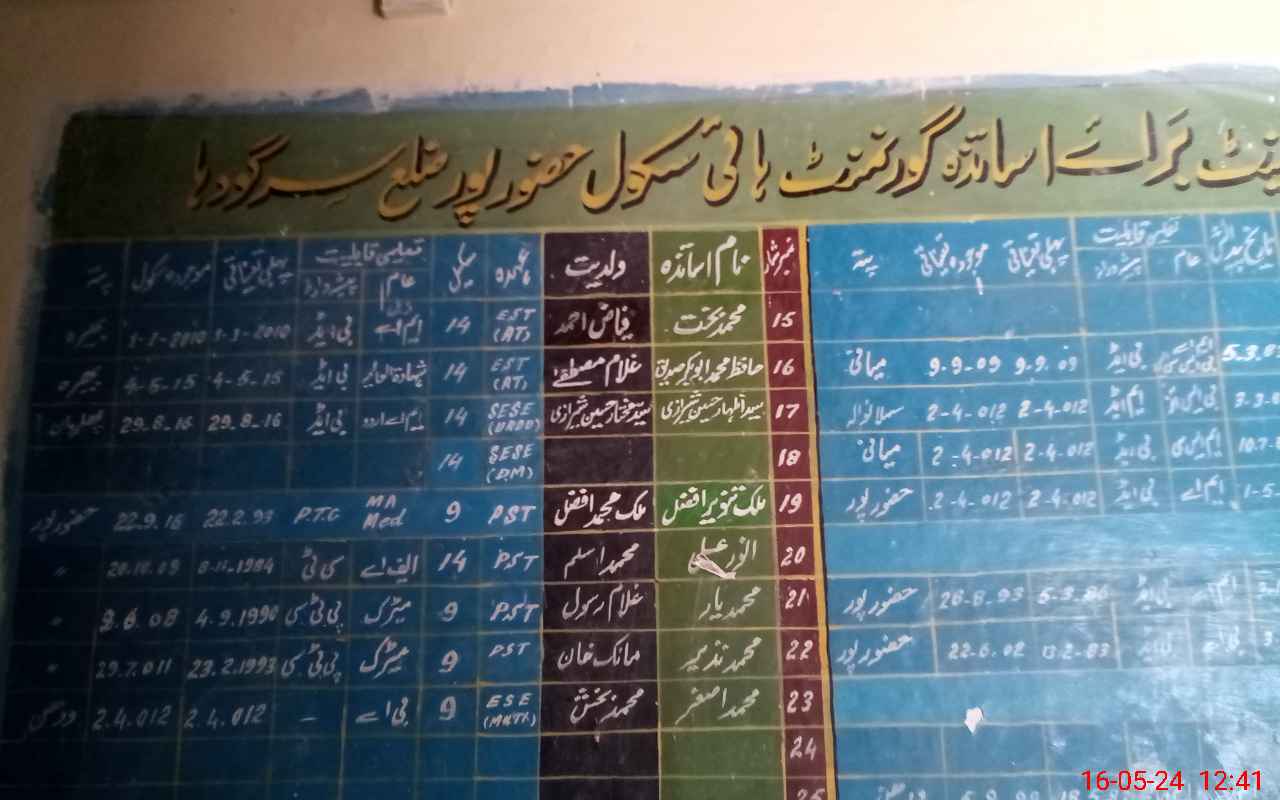 برائے اساتذہ گورنمنٹ ہائی سکول حضور پور ضلع سرگودہا
تاریخ پیدائش تعلیمی قابلیت پہلی تعیناتی موجودہ تعیناتی پتہ نمبر شمار نام اساتذہ ولدیت عہدہ سکیل تعلیمی قابلیت پہلی تعیناتی موجودہ سکول پتہ
عام پیشہ ورانہ عام پیشہ ورانہ
15 محمد بخت فیاض احمد EST (AT) 14 ایم اے بی ایڈ بھیرہ
بی ایڈ 9.9.09 9.9.09 میانی 16 حافظ محمد ابوبکر صدیق غلام مصطفےٰ EST (AT) 14 بی ایڈ 4-5.15 4-5.15 بھیرہ
ایم ایڈ 2-4.012 2-4.012 17 سید اظہار حسین شیرازی سید مختار حسین شیرازی SESE (URDU) 14 ایم اے اردو بی ایڈ 29.8.16 29.8.16
ایم ایس سی بی ایڈ 2-4.012 2-4.012 میانی 18 SESE (DM) 14
ایم اے بی ایڈ 2-4.012 2-4.012 حضور پور 19 ملک تنویر افضل ملک محمد افضل PST 9 MA Med P.T.C 22.2.93 22.9.16 حضور پور
20 انور علی محمد اسلم PST 14 ایف اے سی ٹی 〃
بی ایڈ 26-8.93 حضور پور 21 محمد یار غلام رسول PST 9 میٹرک پی ٹی سی 4.9.1990 9.6.08 〃
بی اے بی ایڈ 13-2-83 22.6.02 حضور پور 22 محمد نذیر مانک خان PST 9 میٹرک پی ٹی سی 23.2.1993 29.7.011 〃
23 محمد اصغر محمد بخش ESE 9 بی اے - 2.4.012 2.4.012
24
25
16-05-24 12:41